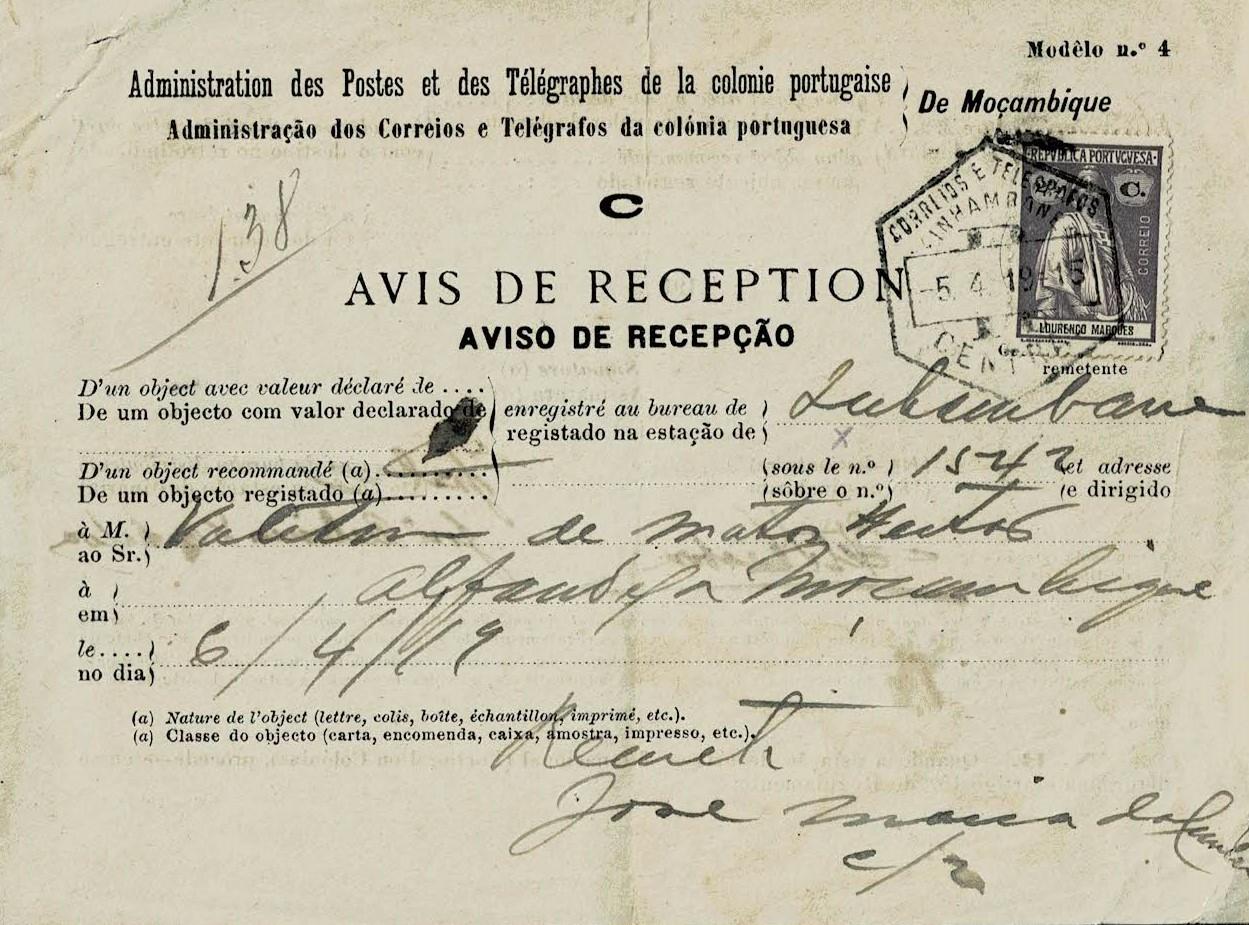 Modêlo n.º 4
Administration des Postes et des Télégraphes de la colonie portugaise
Administração dos Correios e Telégrafos da colónia portuguesa
De Moçambique
REPVBLICA PORTVGVESA
C.
CORREIO
LOURENÇO MARQUES
CORREIOS E TELEGRAFOS
INHAMBANE
-5. 4. 19-15
138
C
AVIS DE RECEPTION
AVISO DE RECEPÇÃO
remetente
D'un object avec valeur déclaré de ....
De um objecto com valor declarado de
enregistré au bureau de
registado na estação de
Inhambane
D'un object recommandé (a)
De um objecto registado (a)
(sous le n.º)
(sôbre o n.º)
1542
et adresse
e dirigido
à M.
ao Sr.
de Matos
à
em
Alfandega Moçambique
le....
no dia
6/4/19
(a) Nature de l'object (lettre, colis, boîte, échantillon, imprimé, etc.).
(a) Classe do objecto (carta, encomenda, caixa, amostra, impresso, etc.).
Remete
Jose Maria da